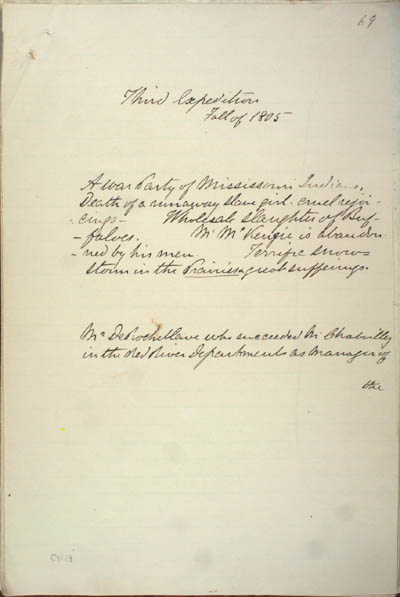 69
Third Expedition
Fall of 1805
A war Party of Mississouri Indians.
Death of a runaway slave girl. cruel rejoi-
-cings - Wholesale slaughter of Buf-
-faloes. Mr McKenzie is abandon
-ned by his men. Terrific snow-
storm in the Prairies, great sufferings.
Mr DeRocheblave who succeeded Mr Chaboillez
in the Red River Department as manager of
the